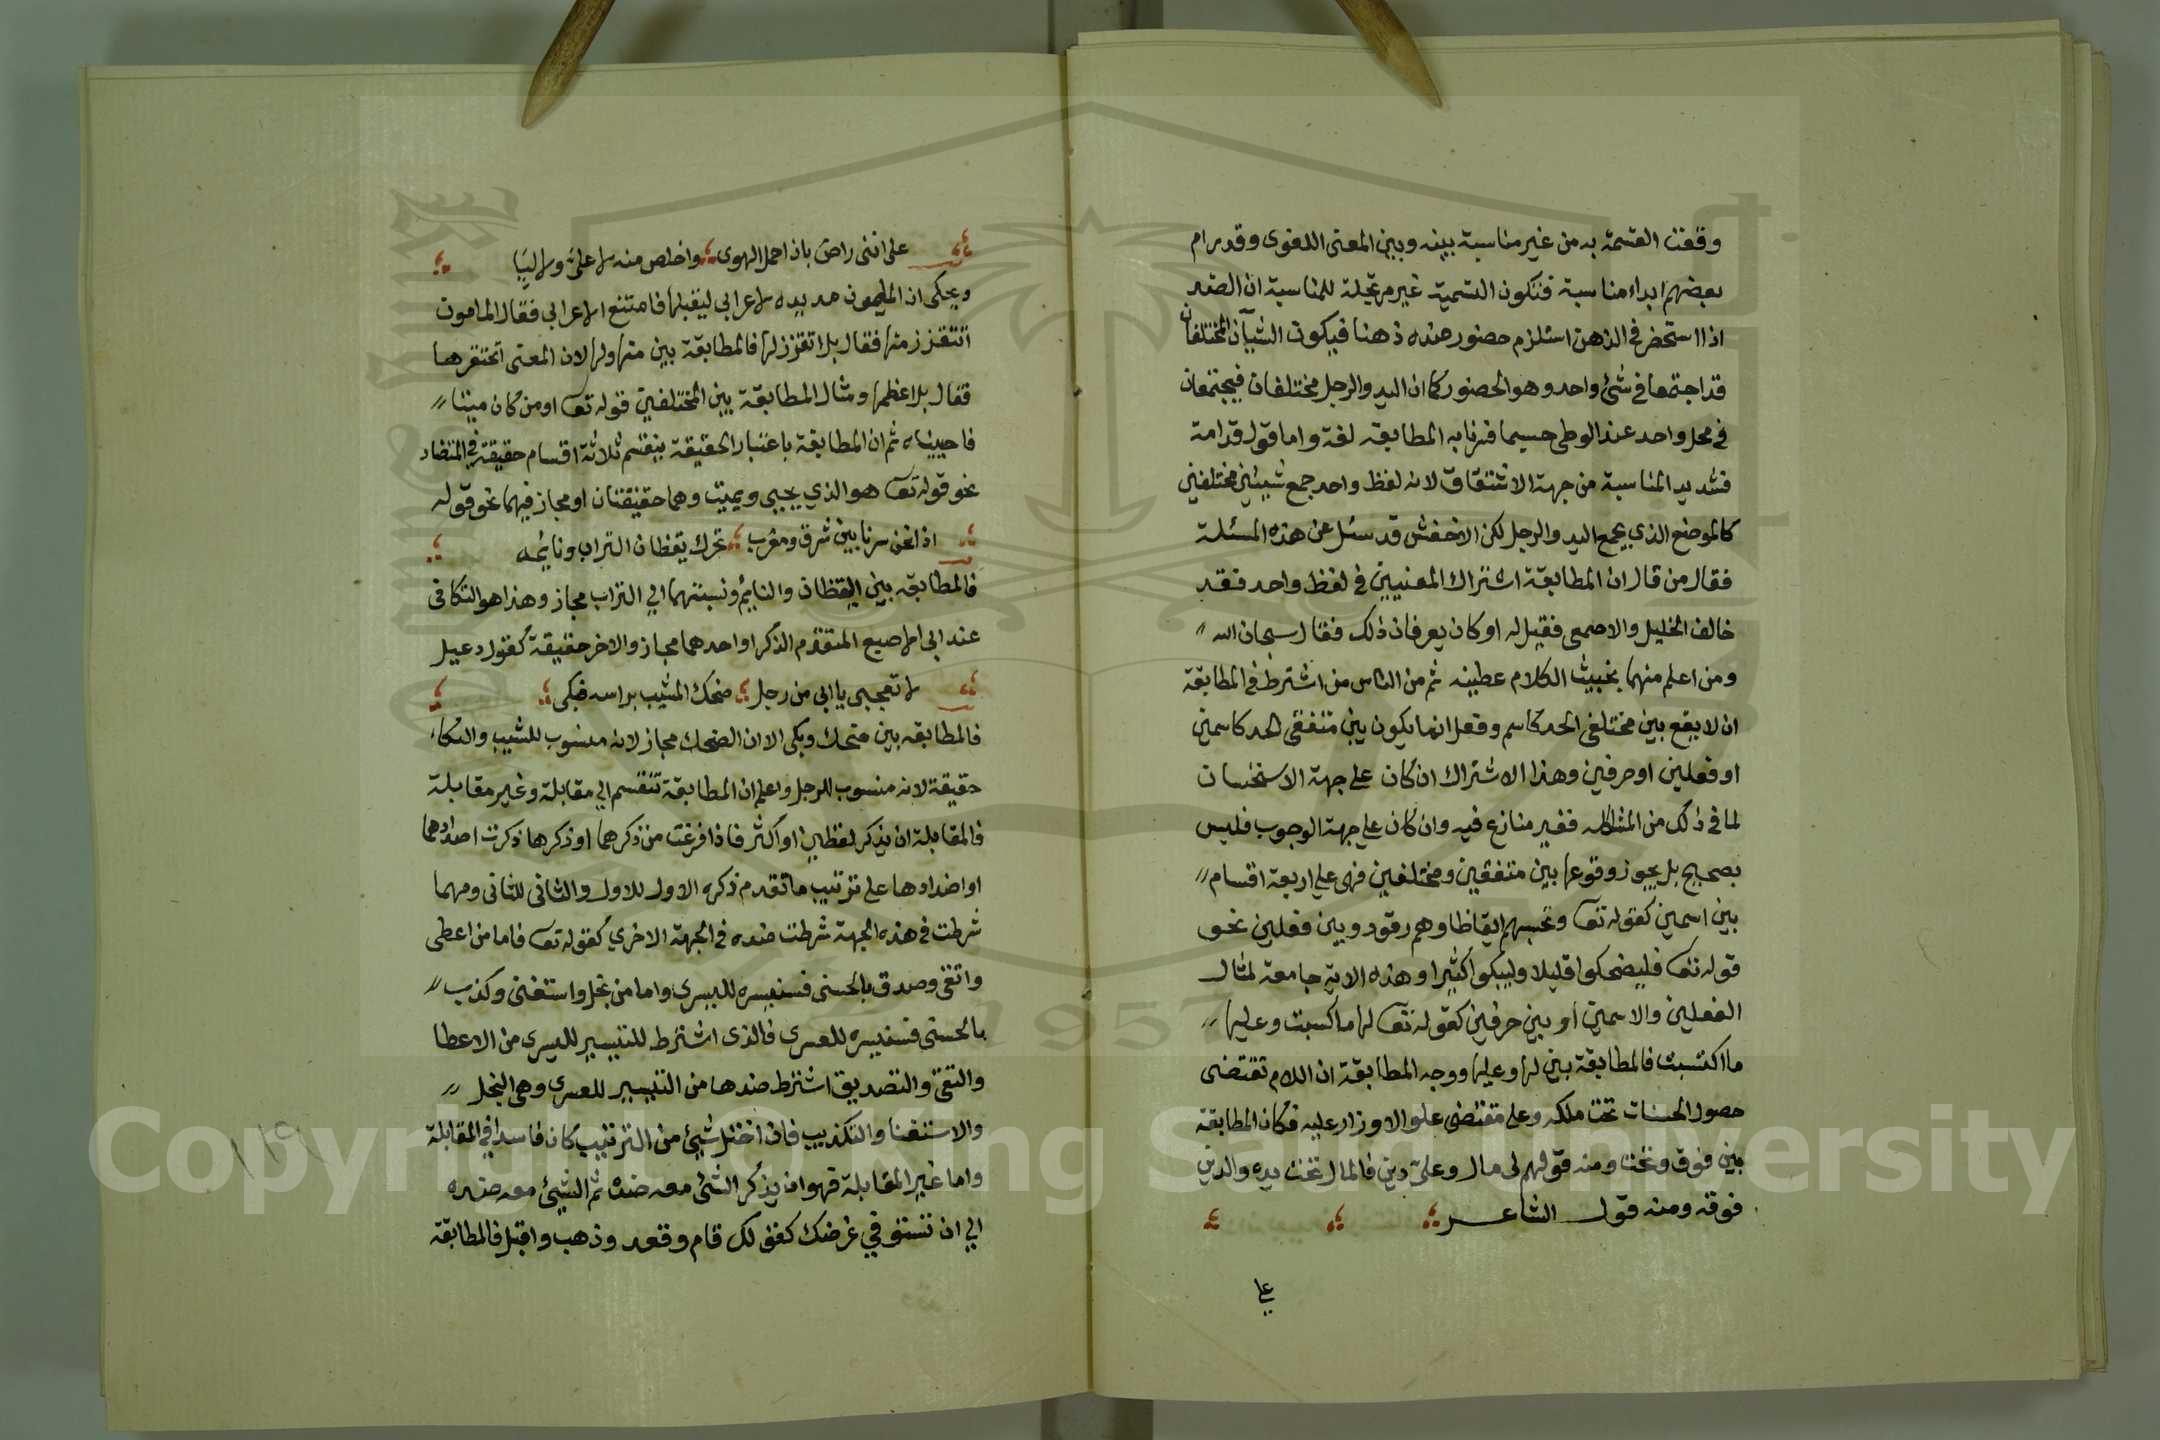 وقعت التسمية به من غير مناسبة بينه وبين المعنى اللغوى وقد رام
بعضهم ابداء مناسبة فتكون التسمية غير مرتجلة للمناسبة ان الضد
اذا استحضر في الذهن استلزم حضور ضده ذهنا فيكون الشيآن المختلفان
قد اجتمعا في شئ واحد وهو الحضور كما ان اليد والرجل مختلفان فيجتمعان
في محل واحد عند الوطى حسيما فسرنا به المطابقه لغة واما قول قدامة
فشديد المناسبة من جهة الاشتقاق لانه لفظ واحد جمع شيئين مختلفين
كالموضع الذي يجمع اليد والرجل لكن الاخفش قد سئل عن هذه المسئلة
فقال من قال ان المطابقة اشتراك المعنيين في لفظ واحد فقد
خالف الخليل والاصمعى فقيل له اوكان يعرفان ذلك فقال سبحان الله
ومن اعلم منهما بخبيث الكلام عطيبه ثم من الناس من اشترط في المطابقة
ان لا يقع بين مختلفى الحد كاسم وفعل انما يكون بين متفقى الحد كاسمين
او فعلين او حرفين وهذا الاشتراك ان كان على جهة الاستحسان
لما في ذلك من المشاكله فغير منازع فيه وان كان على جهة الوجوب فليس
بصحيح بل يجوز وقوعها بين متفقين ومختلفين فهى على اربعة اقسام
بين اسمين كقوله تعا وتحسبهم ايقاظا وهم رقود وبين فعلين نحو
قوله تعا فليضحكوا قليلا وليبكوا كثيرا وهذه الاية جامعة لمثال
الفعلين والاسمين او بين حرفين كقوله تعا لها ما كسبت وعليها
ما اكتسبت فالمطابقة بين لها وعليها ووجه المطابقة ان اللام تقتضى
حصول الحسنات تحت ملكه وعلى تقتضى علو الاوزار عليه فكان المطابقة
بين فوق وتحت ومنه قولهم لى مال وعلىّ دين فالمال تحت يده والدين
فوقه ومنه قول الشاعر
على
على اننى راض بان احمل الهوى واخلص منه لا علىّ ولا ليا
ويحكى ان المامون مد يده لاعرابى ليقبلها فامتنع الاعرابى فقال المامون
اتتقزز منها فقال بل اتقزز لها فالمطابقة بين منها ولها لان المعنى اتحتقرها
فقال بل اعظمها ومثال المطابقة بين المختلفين قوله تعا اومن كان ميتا
فاحييناه ثم ان المطابقة باعتبار الحقيقة ينقسم ثلاثة اقسام حقيقة في المتضاد
نحو قوله تعا هو الذي يحيى ويميت وهما حقيقتان او مجاز فيهما نحو قوله
اذا نحن سرنا بين شرق ومغرب تحرك يقظان التراب ونايمه
فالمطابقه بين اليقظان والنايم ونسبتهما الي التراب مجاز وهذا هو التكافى
عند ابى الاصبع المتقدم الذكر او احدهما مجاز والاخر حقيقة كقول دعبل
لا تعجبى ياابى من رجل ضحك المشيب براسه فبكى
فالمطابقه بين ضحك وبكى الا ان الضحك مجاز لانه منسوب للشيب والبكاء
حقيقة لانه منسوب للرجل واعلم ان المطابقة تنقسم الي مقابلة وغير مقابلة
فالمقابلة ان يذكر لفظين او اكثر فاذا فرغت من ذكرهما او ذكرها ذكرت اضدادهما
او اضدادها على ترتيب ما تقدم ذكره الاول للاول والثانى للثانى ومهما
شرطت في هذه الجهة شرطت ضده في الجهة الاخري كقوله تعا فاما من اعطى
واتقى وصدق بالحسنى فسنيسره لليسرى واما من بخل واستغنى وكذب
بالحسنى فسنيسره للعسرى فالذى اشترط للتيسير لليسرى من الاعطا
والتقى والتصديق اشترط ضدها من التيسير للعسرى وهى البخل
والاستغنا والتكذيب فان اختل شيئ من الترتيب كان فاسدا في المقابلة
واما غير المقابلة فهو ان يذكر الشئ معه ضده ثم الشيئ معه ضده
الي ان تستوفي غرضك كقولك قام وقعد وذهب واقبل فالمطابقة
Copyright © King Saud University
1957